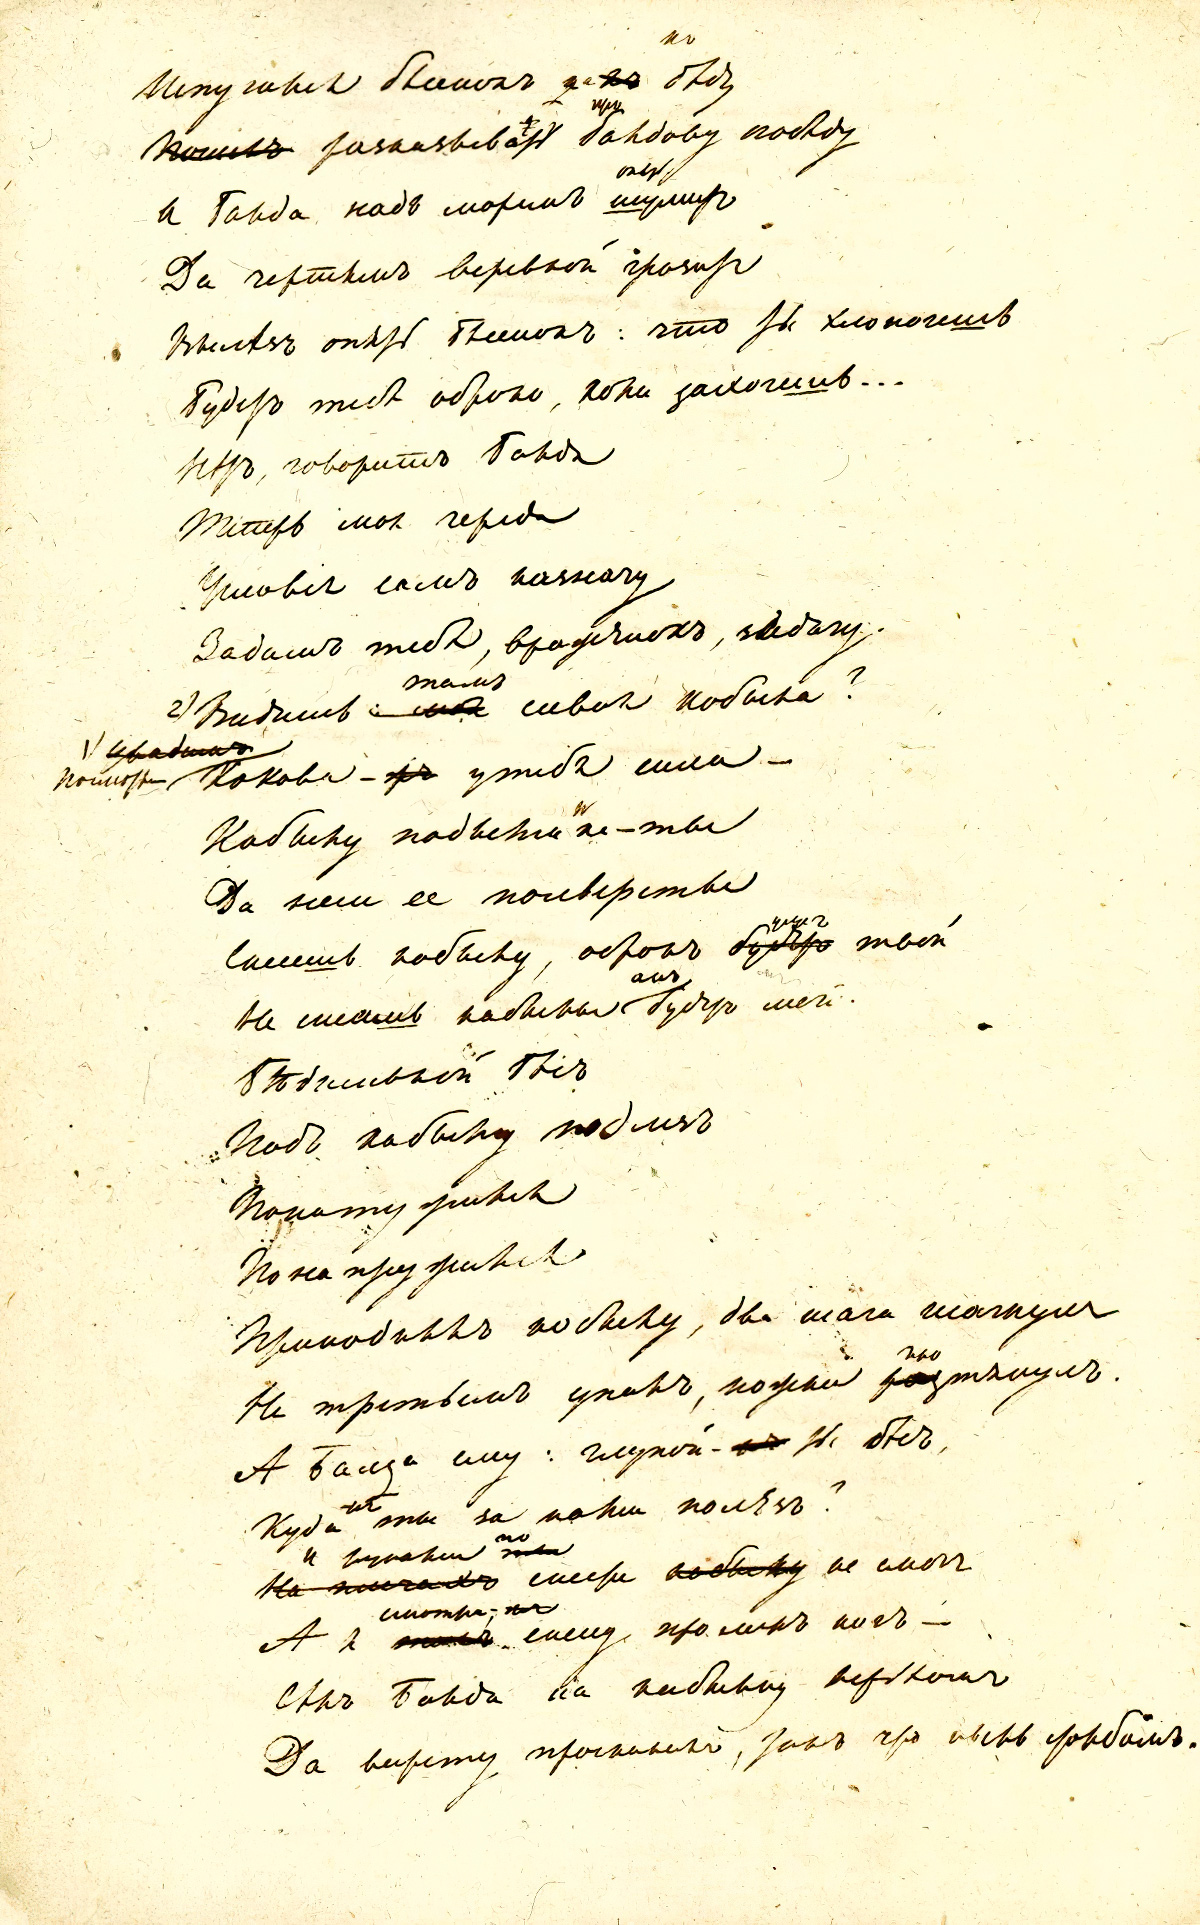 по
Испугался бѣсенокъ да къ дѣду
при
Пошелъ разсказывать Балдову побѣду
опять
А Балда надъ моремъ шумитъ
Да чертямъ веревкой грозитъ
Вылѣзъ опять бѣсенокъ: что ты хлопочешь
Будетъ тебѣ оброкъ, коли захочешь...
Нѣтъ, говоритъ Балда
Теперь моя череда
Условія самъ назначу
Задамъ тебѣ, враженокъ, задачу.
тамъ
2) Видишь: сивая кобыла?
1)
Посмотримъ Какова - у тебя сила —
Кобылу подыми ка-ты
Да неси ее полверсты
Снесешь кобылу, оброкъ будетъ твой
анъ
Не снесешь кобылы будетъ мой.
Бѣдненькой бѣсъ
Подъ кобылу подлезъ
Понатужился
Понапружился
Приподнялъ кобылу, два шага шагнулъ
про
На третьемъ упалъ, ножки разтянулъ.
А Балда ему: глупой-ты бѣсъ,
Куда ты за нами полѣзъ?
И руками то
На плечахъ снести кобылу не смогъ
смотри,
А я снесу промежъ ногъ —
Сѣлъ Балда на кобылку верьхомъ
Да версту проскакалъ, такъ что пыль столбомъ.